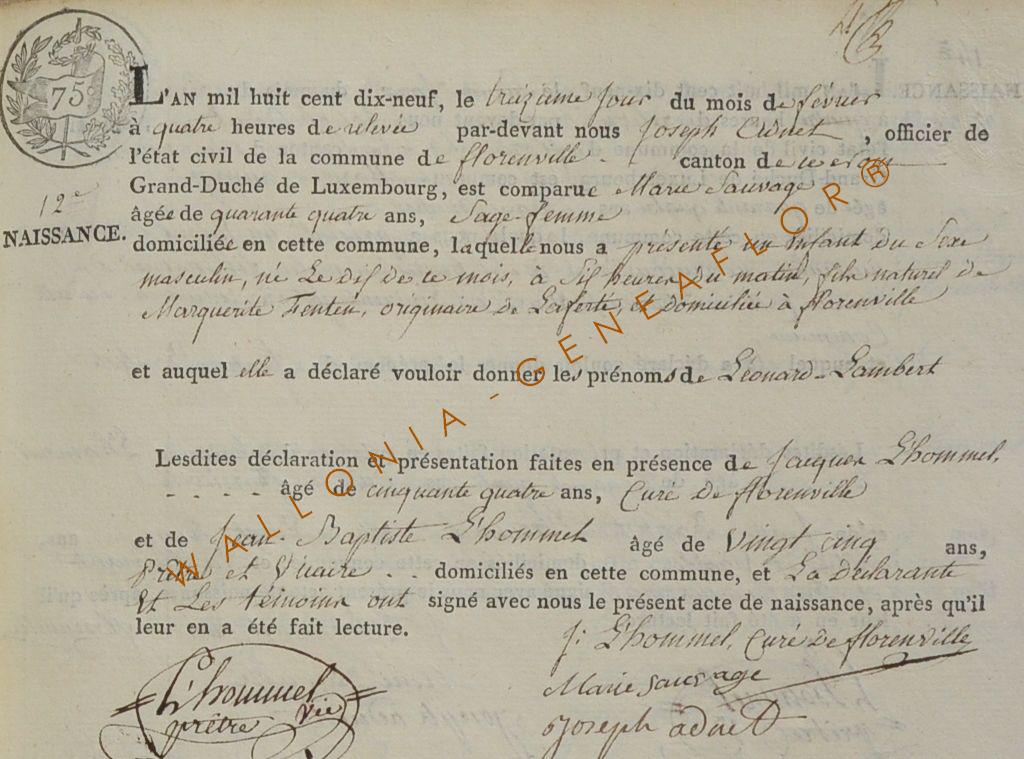 75
L'AN mil huit cent dix-neuf, le treizieme jour du mois de fevrier
à quatre heures de relevée par-devant nous Joseph Adnet, officier de
l'état civil de la commune de florenville canton de
Grand-Duché de Luxembourg, est comparue Marie Sauvage
12e
NAISSANCE.
âgée de quarante quatre ans, Sage-femme
domiciliée en cette commune, laquelle nous a présenté un Enfant du Sexe
masculin, né Le dix de ce mois, à Six heures du matin, fils naturel de
Marguerite, originaire de Laferté, et domiciliée à florenville
et auquel elle a déclaré vouloir donner les prénoms de Léonard-Lambert
Lesdites déclaration et présentation faites en présence de Jacques L'hommel,
- - - - - âgé de cinquante quatre ans, Curé de florenville
et de Jean-Baptiste L'hommel âgé de Vingt cinq ans,
Prêtre et Vicaire - - domiciliés en cette commune, et La Déclarante
Et Les témoins ont signé avec nous le présent acte de naissance, après qu'il
leur en a été fait lecture.
J: L'hommel, Curé de florenville
L'hommel
prêtre vic
Marie sauvage
Joseph adnet
WALLONIA-GENEAFLOR®